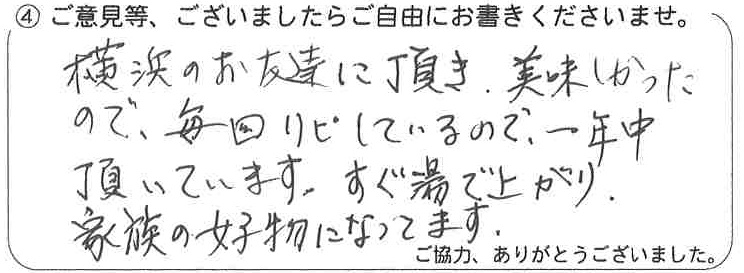 ④ ご意見等、ございましたらご自由にお書きくださいませ。
横浜のお友達に頂き、美味しかった
ので、毎回リピしているので、一年中
頂いています。すぐ湯で上がり、
家族の好物になってます。
ご協力、ありがとうございました。